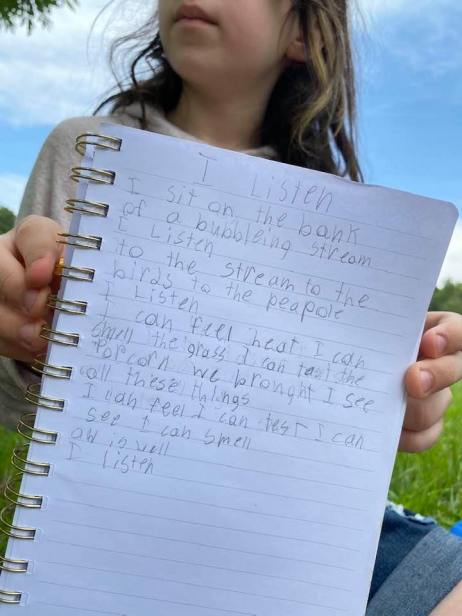 I Listen
I sit on the bank
of a bubbleing stream
I Listen
to the stream to the
birds to the peapole
I Listen
I can feel heat I can
smell the grass I can tast the
Porcorn we brought I see
all these things
I can feel I can test I can
see I can smell
all is well
I Listen